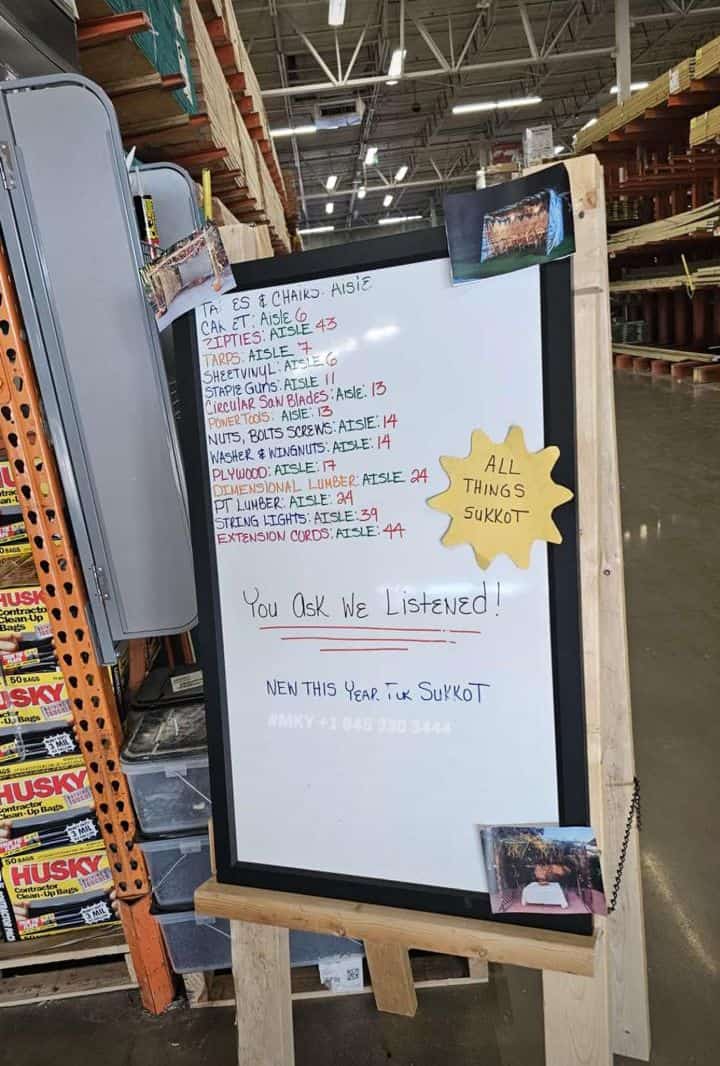 TA ES & CHAIRS: AISLE
CAR ET: AISLE 6
ZIPTIES: AISLE 43
TARPS: AISLE 7
SHEETVINYL: AISLE 6
STAPLE GUNS: AISLE 11
CIRCULAR SAW BLADES: AISLE: 13
POWER TOOLS: AISLE: 13
NUTS, BOLTS SCREWS: AISLE: 14
WASHER & WINGNUTS: AISLE: 14
PLYWOOD: AISLE: 17
DIMENSIONAL LUMBER: AISLE 24
PT LUMBER: AISLE: 24
STRING LIGHTS: AISLE: 39
EXTENSION CORDS: AISLE: 44
ALL
THINGS
SUKKOT
YOU ASK WE LISTENED!
NEW THIS YEAR FOR SUKKOT
HUSK
Contracto
Clean-Up Bag
50 BAGS
HUSKY
HUSKY
Contractor
Clean-Up Bags
3 MIL
50 BAGS
HUSKY
Contractor
Clean-Up Bags
3 MIL